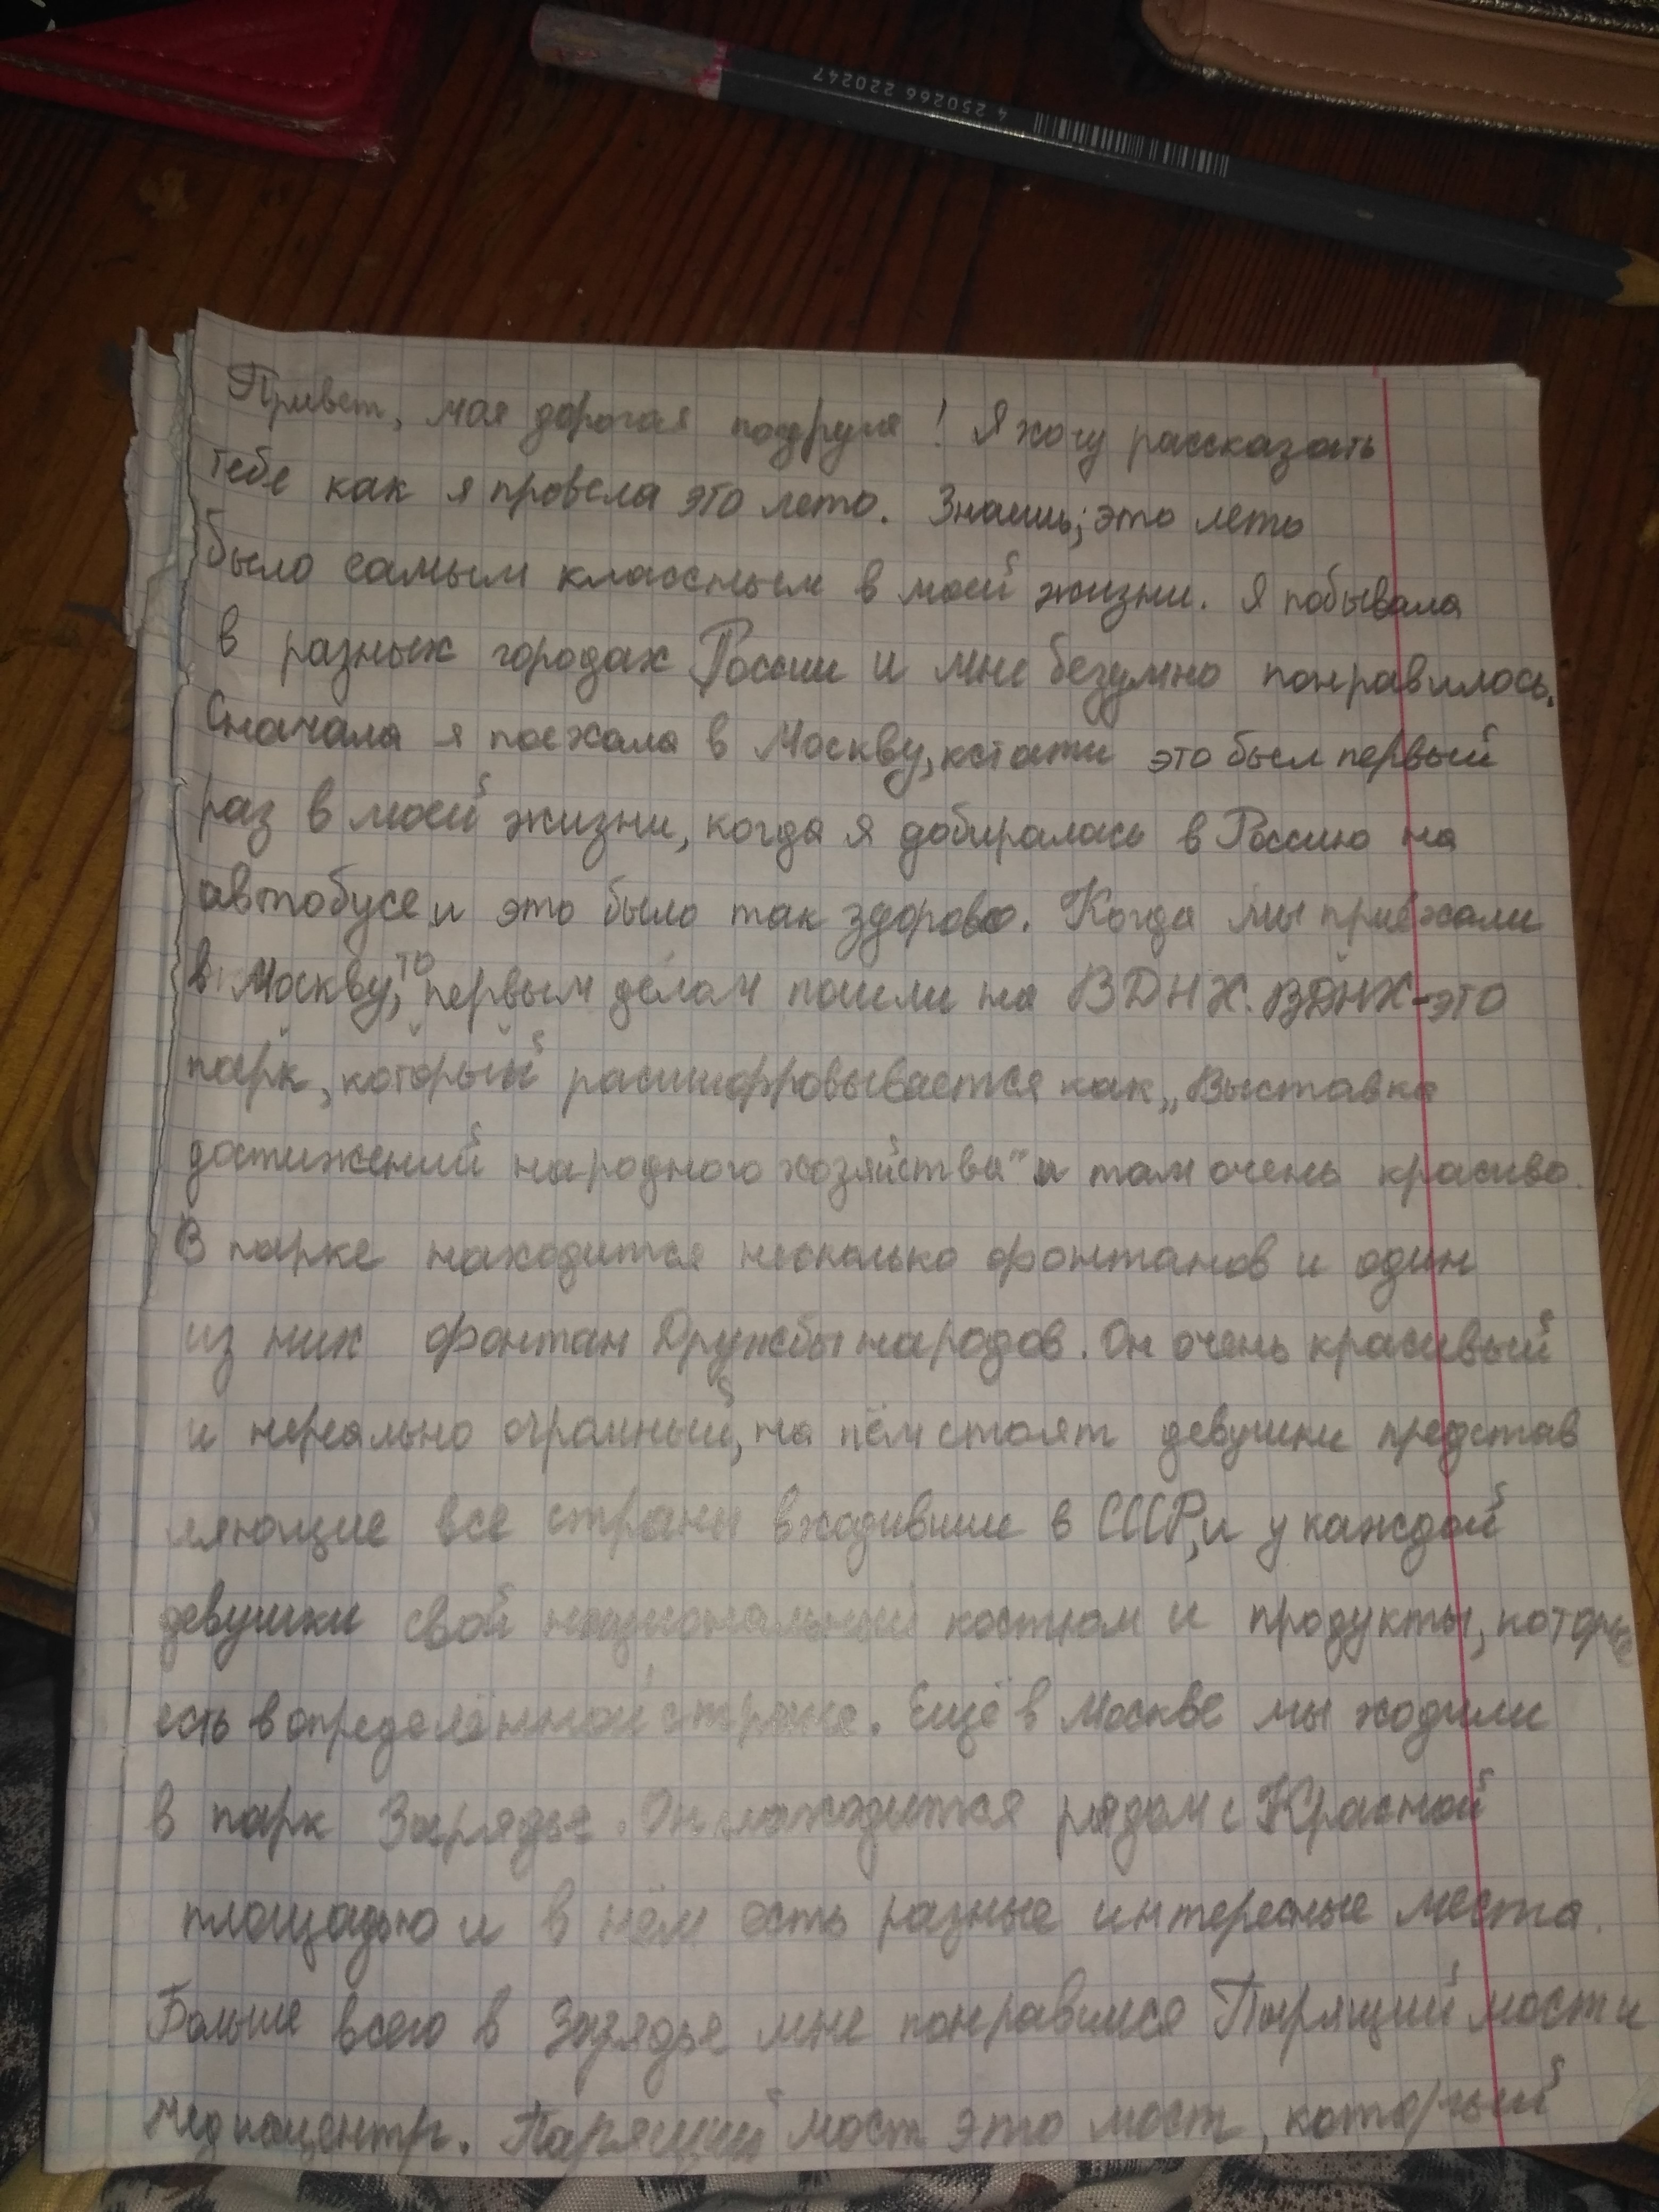 4 250266 220247
Привет, моя дорогая подруга! Я хочу рассказать
тебе как я провела это лето. Знаешь, это лето
было самым классным в моей жизни. Я побывала
в разных городах России и мне безумно понравилось.
Сначала я поехала в Москву, кстати это был первый
раз в моей жизни, когда я добиралась в Россию на
автобусе и это было так здорово. Когда мы приехали
в Москву, то первым делом пошли на ВДНХ. ВДНХ-это
парк, который расшифровывается как „Выставка
достижений народного хозяйства" и там очень красиво.
В парке находится несколько фонтанов и один
из них фонтан Дружбы народов. Он очень красивый
и нереально огромный, на нём стоят девушки представ
ляющие все страны входившие в СССР, и у каждой
девушки свой национальный костюм и продукты, которые
есть в определённой стране. Ещё в Москве мы ходили
в парк Зарядье. Он находится рядом с Красной
площадью и в нём есть разные интересные места.
Больше всего в Зарядье мне понравился Парящий мост и
Медиацентр. Парящий мост это мост, который